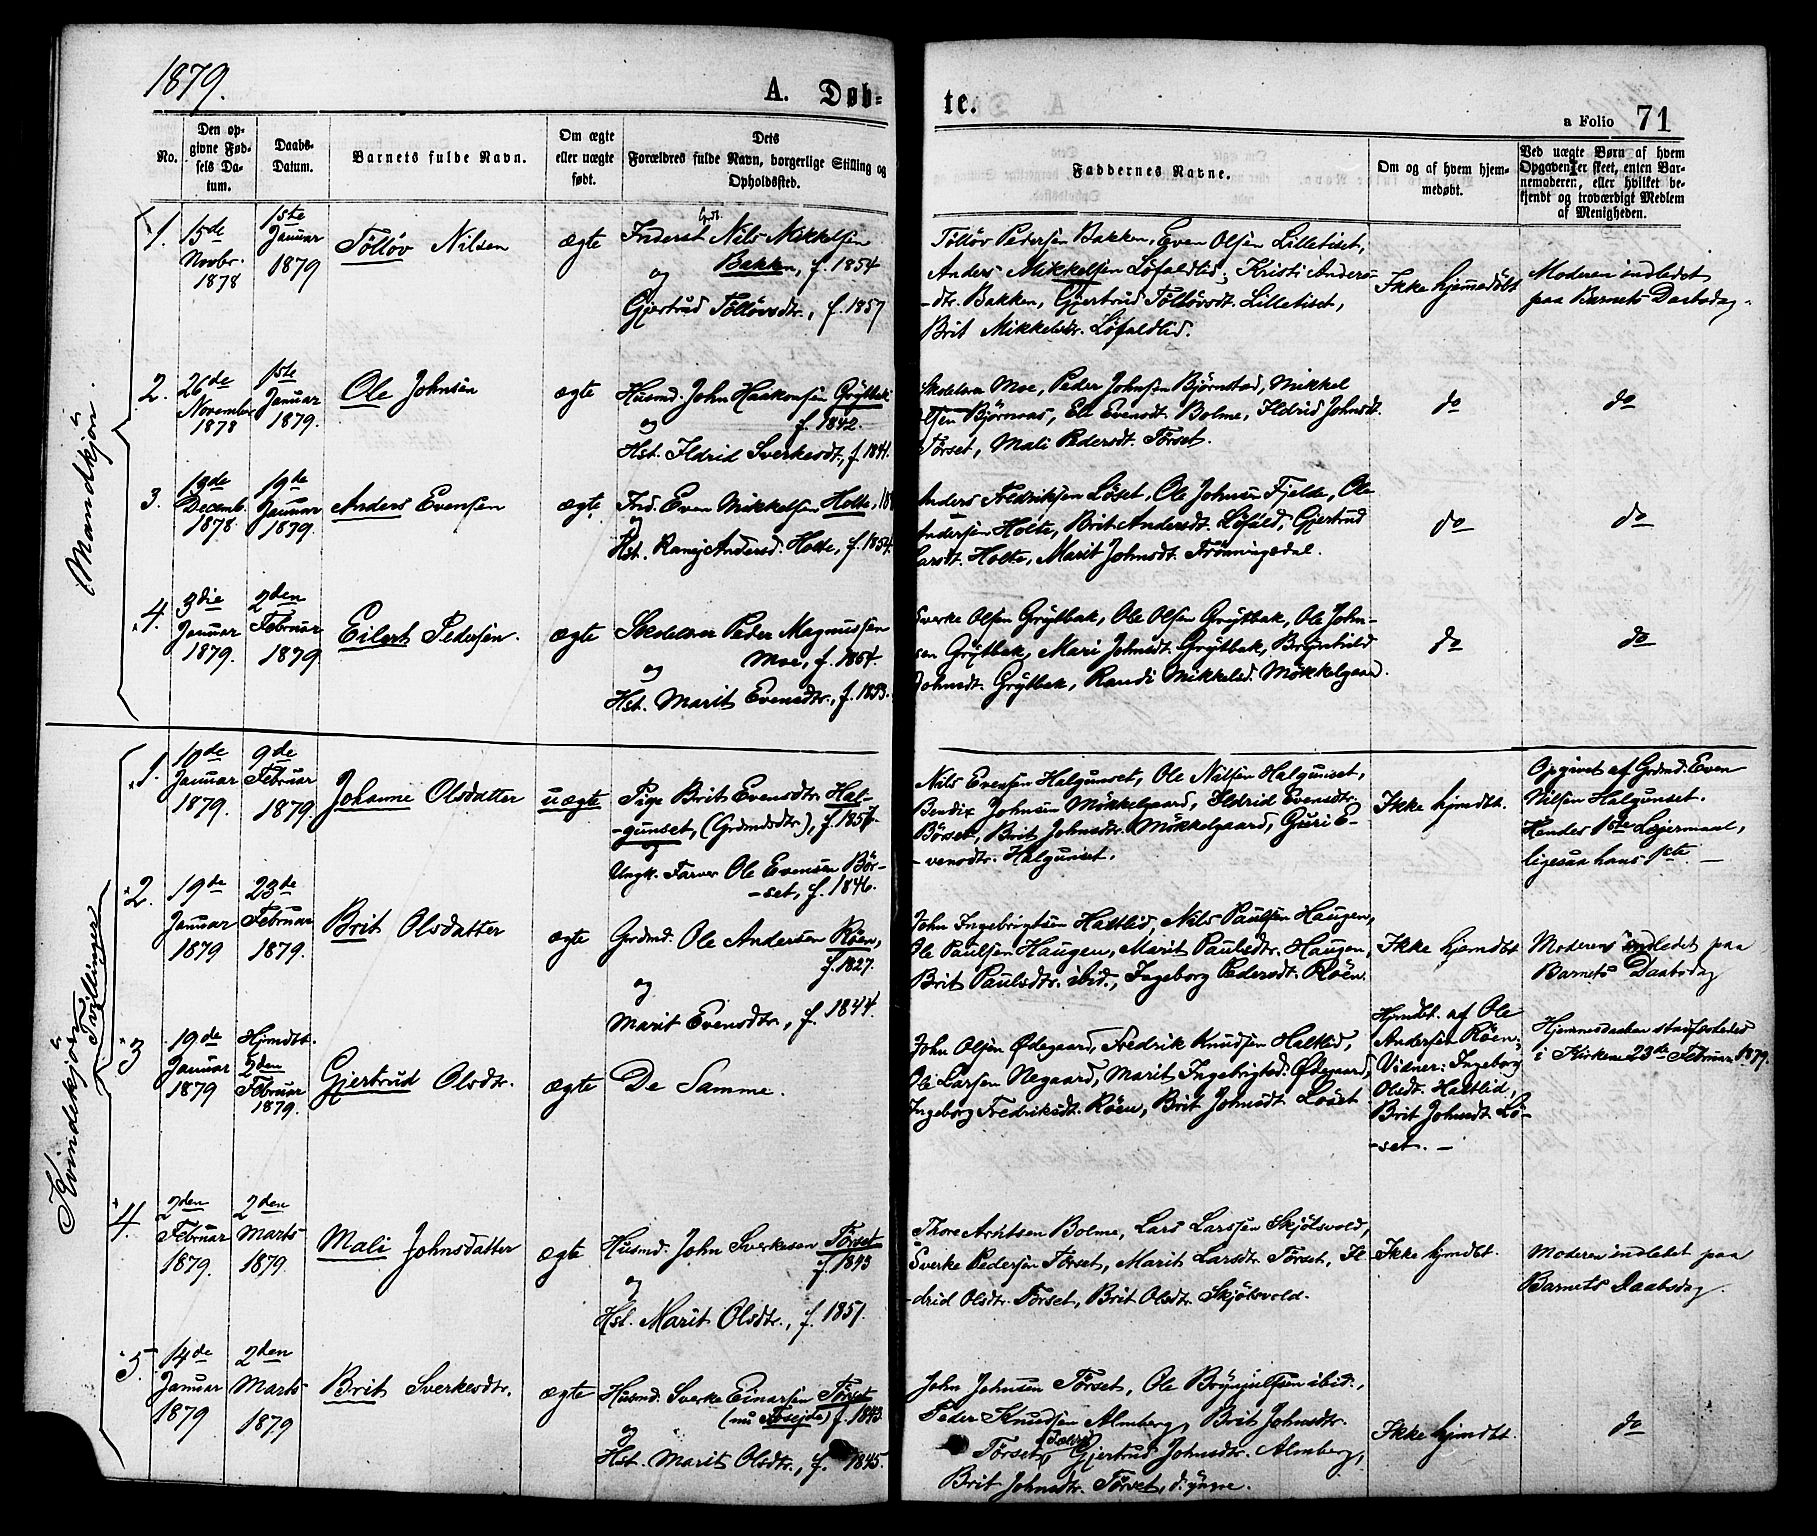 1879.
A. Døb-
te.
a Folio 71
No.
Den op-
givne Fød-
sels Da-
tum.
Daabs-
Datum.
Barnets fulde Navn.
Om ægte
eller uægte
født.
Dets
Forældres fulde Navn, borgerlige Stilling og
Opholdssted.
Faddernes Navne.
Om og af hvem hjem-
medøbt.
Ved uægte Børn af hvem
Opgaven er skeet, enten Bar-
nemoderen, eller hvilket be-
kjendt og troværdigt Medlem
af Menigheden.
Mandkjön.
1.
15de
Novbr.
1878
1ste
Januar
1879
Tölløv Nilsen
ægte
Inderst Nils Mikkelsen
Bakken, f. 1854
og
Gjertrud Tølløvsdtr., f. 1857
Tölløv Pedersen Bakken, Even Olsen Lilletiset,
Anders Mikkelsen Løfaldlid, Kristi Anders-
-dtr. Bakken, Gjertrud Tølløvsdt. Lilletiset,
Brit Mikkelsdtr. Løfaldlid.
Ikke hjemmedöbt
Moderen indledet
paa Barnets Daabsdag.
2.
26de
November
1878
1ste
Januar
1879.
Ole Johnsen
ægte
Husmd. John Haakonsen Grytbak
f. 1842.
og
Hst. Ildrid Sverkesdt., f. 1841.
Skolelærer Moe, Peder Johnsen Bjørnstad, Mikkel
Olsen Bjørnaas, Eli Evensdt. Bolme, Ildrid Johnsdt.
Törset, Mali Pedersdt. Törset.
do
do
3.
19de
Decemb.
1878
19de
Januar
1879.
Anders Evensen
ægte
Ind. Even Mikkelsen Holte, 18
og
Hst. Ranej Andersd. Holte, f. 1854.
Anders Fredriksen Löset, Ole Johnsen Fjelde, Ole
Andersen Holte, Brit Andersdt. Löfald, Gjertrud
Larsdt. Holte, Marit Johnsdt. Trönningsdal.
do
do
4.
3die
Januar
1879.
2den
Februar
1879
Eilert Pedersen.
ægte
Skolelærer Peder Magnussen
Moe, f. 1854.
og
Hst. Marit Evensdtr., f. 1853.
Sverke Olsen Grytbak, Ole Olsen Grytbak, Ole John-
sen Grytbak, Mari Johnsdt. Grytbak, Brynhild
Johnsdt. Grytbak, Randi Mikkelsd. Mökkelgaard.
do
do
Kvindekjön
1.
10de
Januar
1879.
9de
Februar
1879.
Johanne Olsdatter
uægte
Pige Brit Evensdtr. Hal-
-gunset, (Grdmdsdtr.), f. 1857.
og
Ungk. Farver Ole Evensen Bör-
-set, f. 1846.
Nils Evensen Halgunset, Ole Nilsen Halgunset,
Bendix Johnsen Mökkelgaard, Ildrid Evensdtr.
Börset, Brit Johnsdtr. Mökkelgaard, Guri E-
-vensdtr. Halgunset.
Ikke hjmdbt.
Opgivet af Grdmd. Even
Nilsen Halgunset.
Hendes 1ste Lejermaal,
ligesaa hans 1ste. —
Tvillinger
2.
19de
Januar
1879
23de
Februar
1879.
Brit Olsdatter
ægte
Grdmd. Ole Andersen Röen,
f. 1827.
og
Marit Evensdtr., f. 1844.
John Ingebrigtsen Haltlid, Nils Paulsen Haugen,
Ole Paulsen Haugen, Marit Paulsdtr. Haugen,
Brit Paulsdtr. ibid., Ingeborg Pedersdt. Röen.
Ikke hjemdbt
Moderen indledet paa
Barnets Daabsdag
3
19de
Januar
1879
Hjmdbt.
2den
Februar
1879.
Gjertrud Olsdtr.
ægte
De Samme.
John Olsen Ødegaard, Fredrik Knudsen Haltlid,
Ole Larsen Negaard, Marit Ingebrigtsd. Ødegaard,
Ingeborg Fredriksdt. Röen, Brit Johnsdt. Loset
Hjmdbt. af Ole
Andersen Röen;
Vidner: Ingeborg
Olsdt. Haltlid,
Brit Johnsdt. Lö-
-set. —
Hjemmedaaben stadfæstedes
i Kirken 23de Februar 1879.
4.
2den
Februar
1879.
2den
Marts
1879
Mali Johnsdatter
ægte
Husmd. John Sverkesen Törset
f. 1843
og
Hst. Marit Olsdtr., f. 1851.
Thore Arntsen Bolme, Lars Larssen Skjölsvold,
Sverke Pedersen Törset, Marit Larsdtr. Törset, Il-
-drid Olsdtr. Törset, Brit Olsdtr. Skjölsvold.
Ikke hjmdbt.
Moderen indledet paa
Barnets Daabsdag.
5.
14de
Januar
1879
2den
Marts
1879
Brit Sverkesdtr.
ægte
Husmd. Sverke Einarsen Törset
(nu ), f. 1843.
og
Hst. Marit Olsdtr., f. 1845.
John Johnsen Törset, Ole Brynjulfsen ibid.,
Peder Knudsen Almberg, Brit Johnsdtr.
Törset, (ældre) Gjertrud Johnsdtr. Almberg,
Brit Johnsdtr. Törset, d: yngre.
Ikke hjmdbt.
do